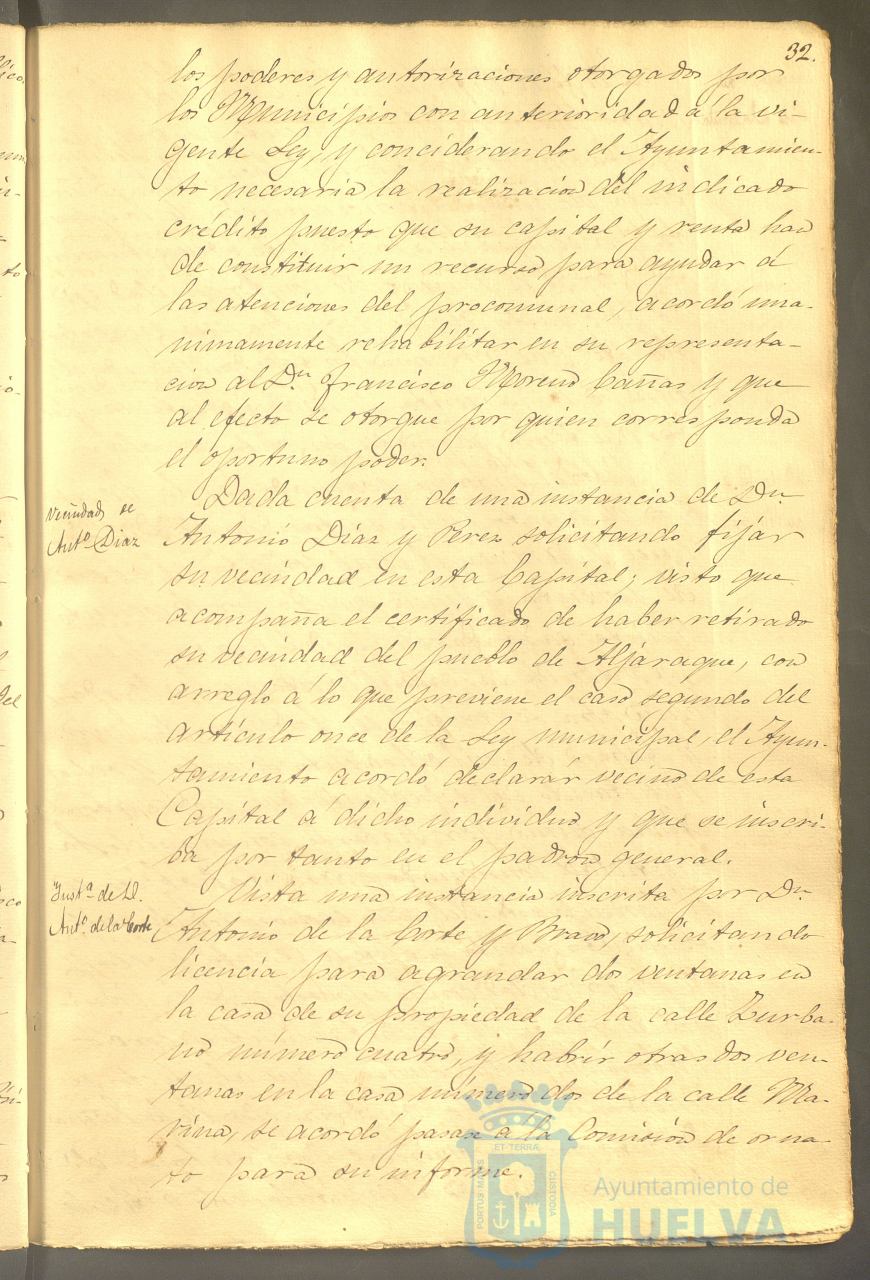 32.
los poderes y autorizaciones otorgados por
los Municipios con anterioridad á la vi-
gente Ley, y conciderando el Ayuntamien-
to necesaria la realizacion del indicado
crédito puesto que su capital y renta han
de constituir un recurso para ayudar á
las atenciones del procomunal, acordó una-
nimamente rehabilitar en su representa-
cion al Dn. Francisco Moreno Cañas y que
al efecto se otorgue por quien corresponda
el oportuno poder.
Vecindad de
Antº Diaz
Dada cuenta de una instancia de Dn
Antonio Díaz y Perez solicitando fijar
su vecindad en esta Capital; visto que
acompaña el certificado de haber retirado
su vecindad del pueblo de Aljaraque, con
arreglo á lo que previene el caso segundo del
artículo once de la Ley municipal, el Ayun-
tamiento acordó declarár vecino de esta
Capital á dicho individuo y que se inscri-
ba por tanto en el padron general.
Instª de D.
Antº de la Corte
Vista una instancia inscrita por Dn
Antonio de la Corte y Bravo, solicitando
licencia para agrandar dos ventanas en
la casa de su propiedad de la calle Zurba-
no número cuatro, y habrír otras dos ven-
tanas en la casa número dos de la calle Ma-
rina, se acordó pasase a la Comisión de orna-
to para su informe.
ET TERRÆ
PORTUS MARIS
CUSTODIA
Ayuntamiento de
HUELVA